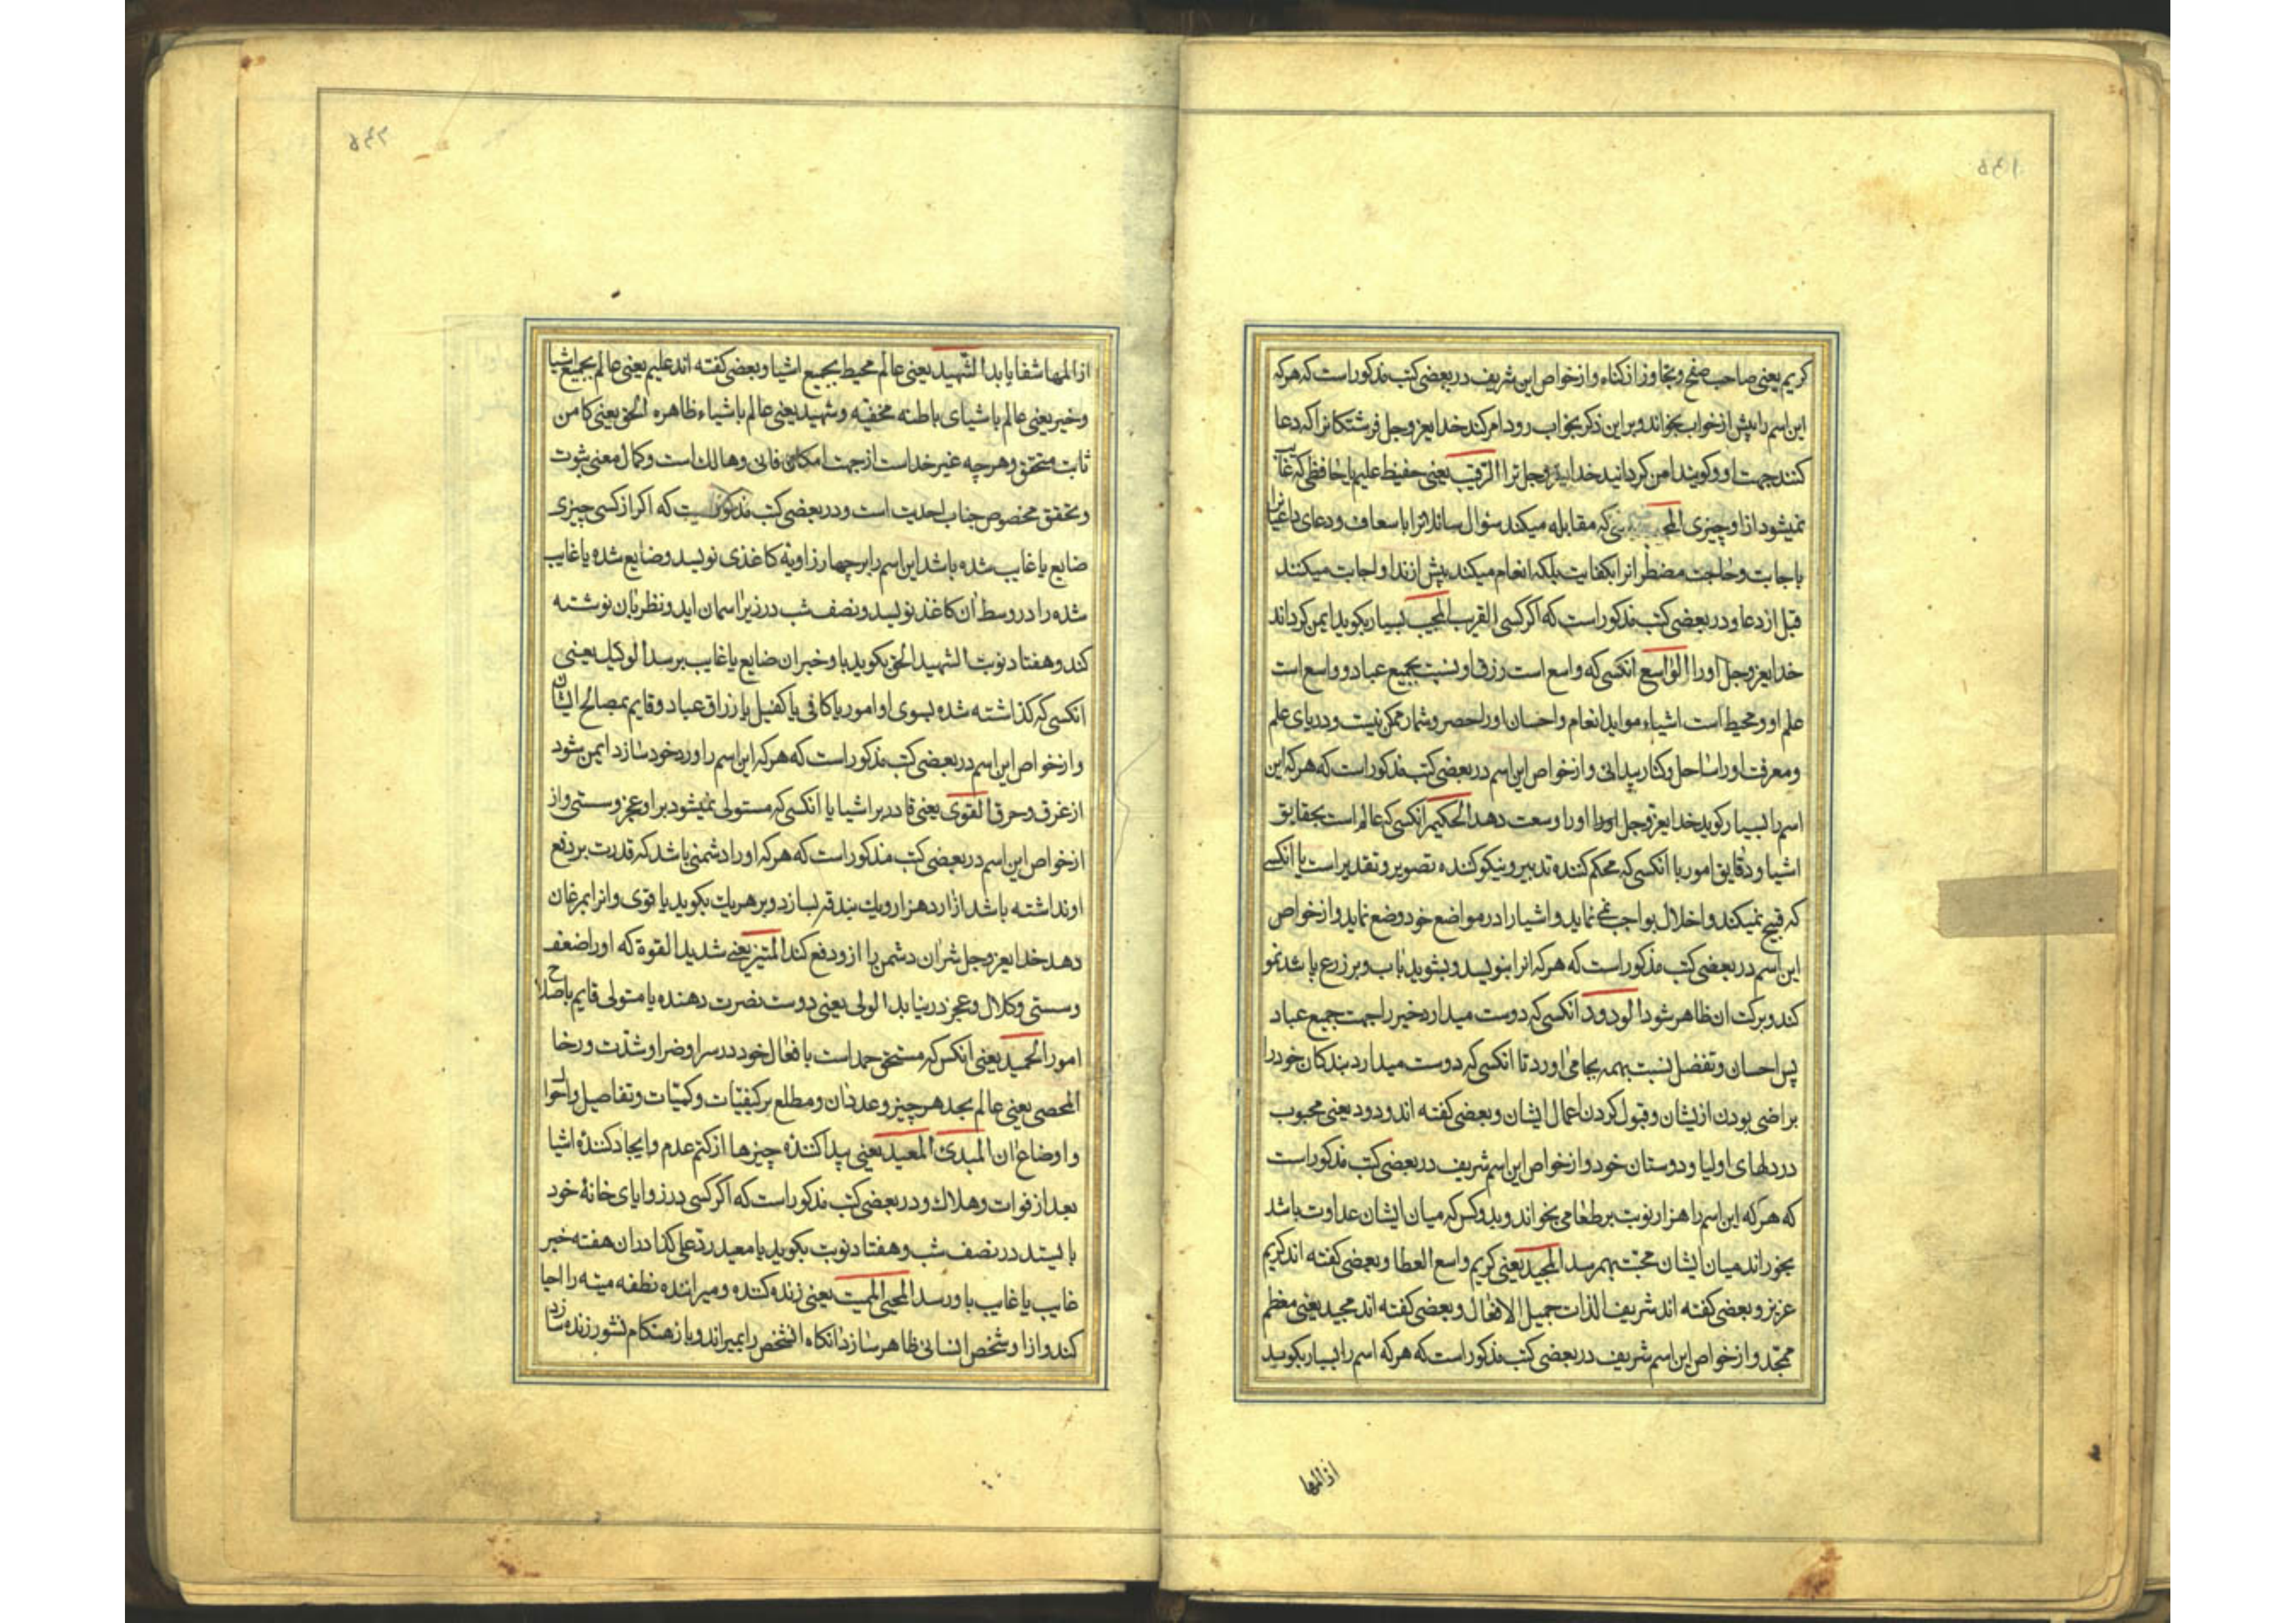 ۵۴۱
کریم یعنی صاحب صفح و تجاوز از کناه و از خواص این شریف در بعضی کتب مذکور است که هرکه
این اسم را پیش از خواب بخواند و بر این ذکر بخواب رود امر کند خدایعز وجل فرشتکانرا که دعا
کنند جهت او و کویند امن کرداند خدایعز وجل ترا الرقیب یعنی حفیظ علیم یا حافظی که غایب
نمیشود از او چیزی المجیب که مقابله میکند سئوال سائلانرا باسعاف و دعای داعیانرا
باجابت و حاجت مضطرانرا بکفایت بلکه انعام میکند پیش از ندا و اجابت میکند
قبل از دعا و در بعضی کتب مذکور است که اکر کسی القریب المجیب بسیار بکوید ایمن کرداند
خدایعز وجل اورا الواسع انکسی که واسع است رزق او نسبت بجمیع عباد و واسع است
علم او و محیط است اشیاء موابد انعام و احسان اورا حصر و شمار ممکن نیست و دریای علم
و معرفت اورا ساحل و کنار پیدا نی و از خواص این اسم در بعضی کتب مذکور است که هرکه این
اسم را بسیار کوید خدایعز وجل اورا اورا وسعت دهد الحکیم انکسی که عالم است بحقایق
اشیا و دقایق امور یا انکسی که محکم کننده تدبیر و نیکو کننده تصویر و تقدیر است یا انکسی
که قبیح نمیکند و اخلال بواجب نمی نماید و اشیا را در مواضع خود وضع نماید و از خواص
این اسم در بعضی کتب مذکور است که هرکه انرا بنویسد و بشوید باب و بر زرع پاشد نمو
کند و برکت ان ظاهر شود الودود انکسی که دوست میدارد خیر را جهت جمیع عباد
پس احسان و تفضل نسبت بهمه بجا می اورد تا انکسی که دوست میدارد بندکان خود را
براضی بودن از ایشان و قبول کردن اعمال ایشان و بعضی کفته اند ودود یعنی محبوب
در دلهای اولیا و دوستان خود و از خواص این اسم شریف در بعضی کتب مذکور است
که هرکه این اسم را هزار نوبت بر طعامی بخواند و بدو کس که میان ایشان عداوت باشد
بخوراند میان ایشان محبت بهم رسد المجید یعنی کریم واسع العطا و بعضی کفته اند کریم
عزیز و بعضی کفته اند شریف الذات جمیل الافعال و بعضی کفته اند مجید یعنی معظم
ممجد و از خواص این اسم شریف در بعضی کتب مذکور است که هرکه اسم را بسیار بکوید
از المها
۵۴۲
از المها شفا یابد الشهید یعنی عالم محیط بجمیع اشیا و بعضی کفته اند علیم یعنی عالم بجمیع اشیا
و خبیر یعنی عالم باشیای باطنه مخفیه و شهید یعنی عالم باشیاء ظاهره الحق یعنی کامن
ثابت متحقق و هرچه غیر خداست از جهت امکان فانی و هالک است و کمال معنی ثبوت
و تحقق مخصوص جناب احدیت است و در بعضی کتب مذکور است که اکر از کسی چیزی
ضایع یا غایب شده باشد این اسم را بر چهار زاویه کاغذی نویسد و ضایع شده یا غایب
شده را در وسط ان کاغذ نویسد و نصف شب در زیر اسمان اید و نظر بان نوشته
کند و هفتاد نوبت الشهید الحق بکوید باو خبر ان ضایع یا غایب برسد الوکیل یعنی
انکسی که کذاشته شده بسوی او امور یا کافی یا کفیل بارزاق عباد و قایم بمصالح ایشان
و از خواص این اسم در بعضی کتب مذکور است که هرکه این اسم را ورد خود سازد ایمن شود
از غرق و حرق القوی یعنی قادر بر اشیا یا انکسی که مستولی نمیشود بر او عجز و سستی و از
ازخواص این اسم در بعضی کتب مذکور است که هرکه اورا دشمنی باشد که قدرت بر دفع
او نداشته باشد از ارد هزار و یک بندقه بسازد و بر هر یک بکوید یا قوی و انرا بمرغان
دهد خدایعز وجل شر ان دشمن را از و دفع کند المتین یعنی شدید القوة که اورا ضعف
و سستی و کلال و عجز در نیابد الولی یعنی دوست نصرت دهنده یا متولی قایم باصلاح
امور الحمید یعنی انکس که مستحق حمد است بافعال خود در سرا و ضرا و شدت و رخا
المحصی یعنی عالم بحد هر چیز و عدد ان و مطلع بر کیفیات و کمیات و تفاصیل و احوال
و اوضاع ان المبدئ المعید یعنی پیدا کننده چیزها از کتم عدم و ایجاد کننده اشیا
بعد از فوات و هلاک و در بعضی کتب مذکور است که اکر کسی در زوایای خانه خود
بایستد در نصف شب و هفتاد نوبت بکوید یا معید رد علی کذا در ان هفته خبر
غایب یا غایب باو رسد المحیی الممیت یعنی زنده کننده و میراننده نطفه میته را احیا
کند و از او شخص انسانی ظاهر سازد انکاه ان شخص را بمیراند و باز هنکام نشور زنده سازد